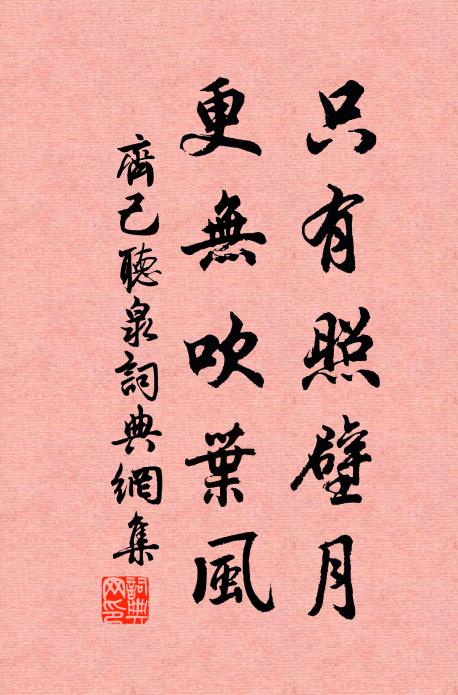 只有照壁月
更無吹葉風
齊己聽泉詞典網集
詞典網印